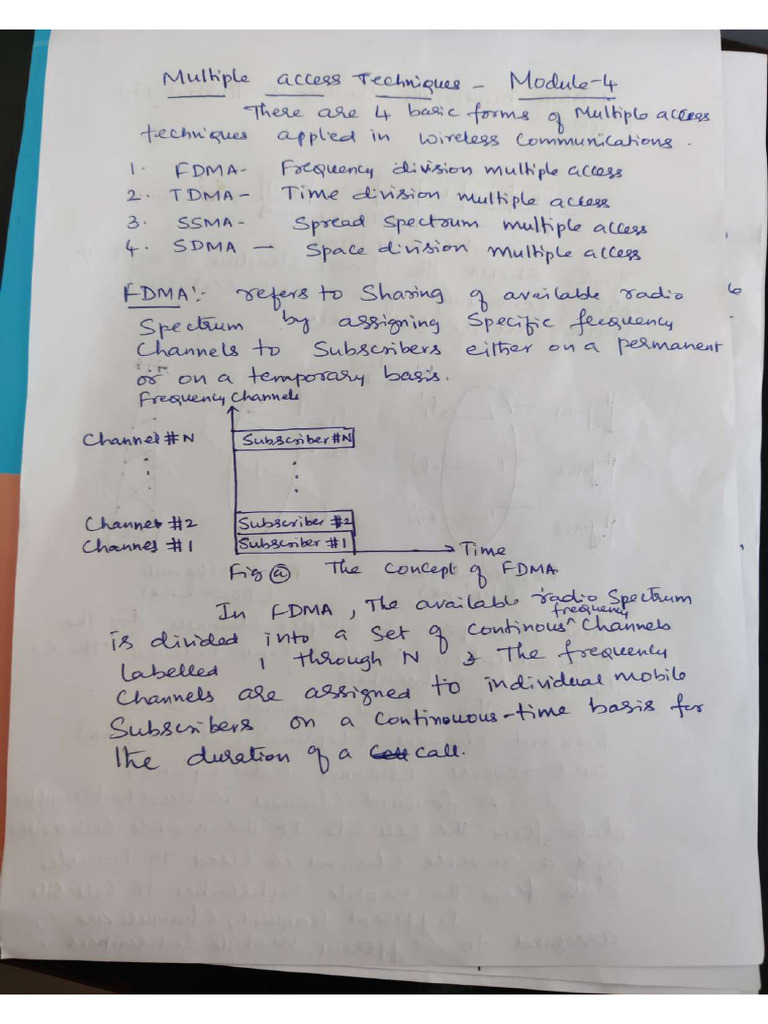 Multiple access Techniques - Module-4
There are 4 basic forms of Multiple access
techniques applied in wireless communications.
1. FDMA - Frequency division multiple access
2. TDMA - Time division multiple access
3. SSMA - Spread Spectrum multiple access
4. SDMA - Space division multiple access
FDMA :- refers to Sharing of available radio
Spectrum by assigning Specific frequency
Channels to Subscribers either on a permanent
or on a temporary basis.
Frequency Channels
Channel # N Subscriber #N
Channel #2 Subscriber #2
Channel #1 Subscriber #1
Time
Fig (a) The concept of FDMA
In FDMA, The available radio Spectrum
is divided into a set of continous ^frequency Channels
labelled 1 through N & The frequency
Channels are assigned to individual mobile
Subscribers on a continouous-time basis for
the duration of a call.